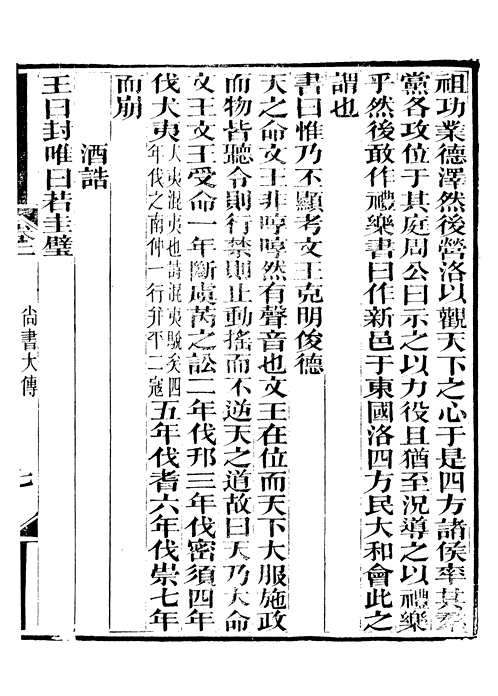 祖功業德澤然後營洛以觀天下之心于是四方諸侯率其羣
黨各攻位于其庭周公曰示之以力役且猶至況導之以禮樂
乎然後敢作禮樂書曰作新邑于東國洛四方民大和會此之
謂也
書曰惟乃丕顯考文王克明俊德
天之命文王非啍啍然有聲音也文王在位而天下大服施政
而物皆聽令則行禁則止動搖而不逆天之道故曰天乃大命
文王文王受命一年斷虞芮之訟二年伐邘三年伐密須四年
伐犬夷犬夷混夷也詩混夷駾矣四年伐之南仲一行并平二寇五年伐耆六年伐崇七年
而崩
酒誥
王曰封唯曰若圭璧
尚書大傳
七